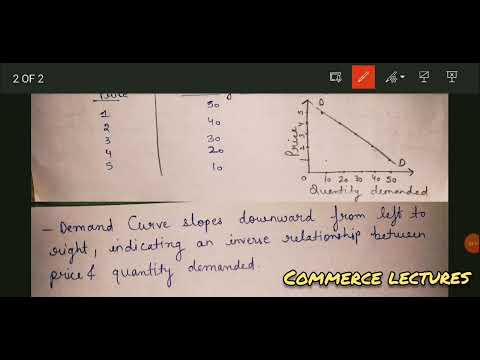 2 OF 2
Price
1 50
2 40
3 30
4 20
5 10
D
5
4
3
2
1
Price
D
0 10 20 30 40 50
Quantity demanded
- Demand Curve slopes downward from left to
right, indicating an inverse relationship between
price & quantity demanded.
COMMERCE LECTURES